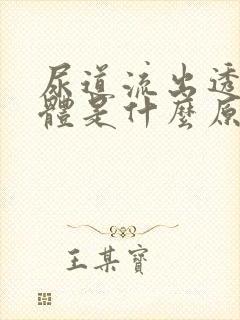 尿道流出透
體是什麼原
王某寶